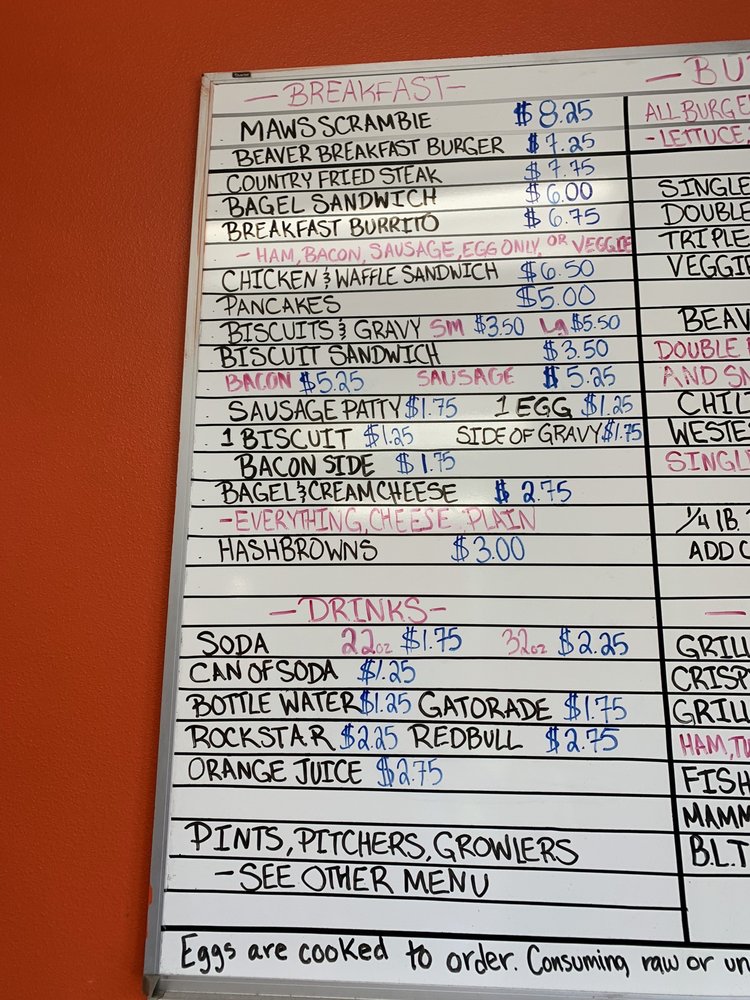 - BREAKFAST -
MAWS SCRAMBLE $8.25
BEAVER BREAKFAST BURGER $7.25
COUNTRY FRIED STEAK $7.75
BAGEL SANDWICH $6.00
BREAKFAST BURRITO $6.75
- HAM, BACON, SAUSAGE, EGG ONLY, OR VEGGIE
CHICKEN & WAFFLE SANDWICH $6.50
PANCAKES $5.00
BISCUITS & GRAVY SM $3.50 LG $5.50
BISCUIT SANDWICH $3.50
BACON $5.25 SAUSAGE $5.25
SAUSAGE PATTY $1.75 1 EGG $1.25
1 BISCUIT $1.25 SIDE OF GRAVY $1.75
BACON SIDE $1.75
BAGEL & CREAM CHEESE $2.75
- EVERYTHING, CHEESE PLAIN
HASHBROWNS $3.00
- DRINKS -
SODA 22oz $1.75 32oz $2.25
CAN OF SODA $1.25
BOTTLE WATER $1.25 GATORADE $1.75
ROCKSTAR $2.25 REDBULL $2.75
ORANGE JUICE $2.75
PINTS, PITCHERS, GROWLERS
- SEE OTHER MENU
- BU
ALL BURGE
- LETTUCE,
SINGLE
DOUBLE
TRIPLE
VEGGIE
BEAV
DOUBLE
AND SM
CHIL
WESTE
SINGL
1/4 LB.
ADD C
GRILL
CRISP
GRILL
HAM, TU
FISH
MAMM
B.L.T
Eggs are cooked to order. Consuming raw or un